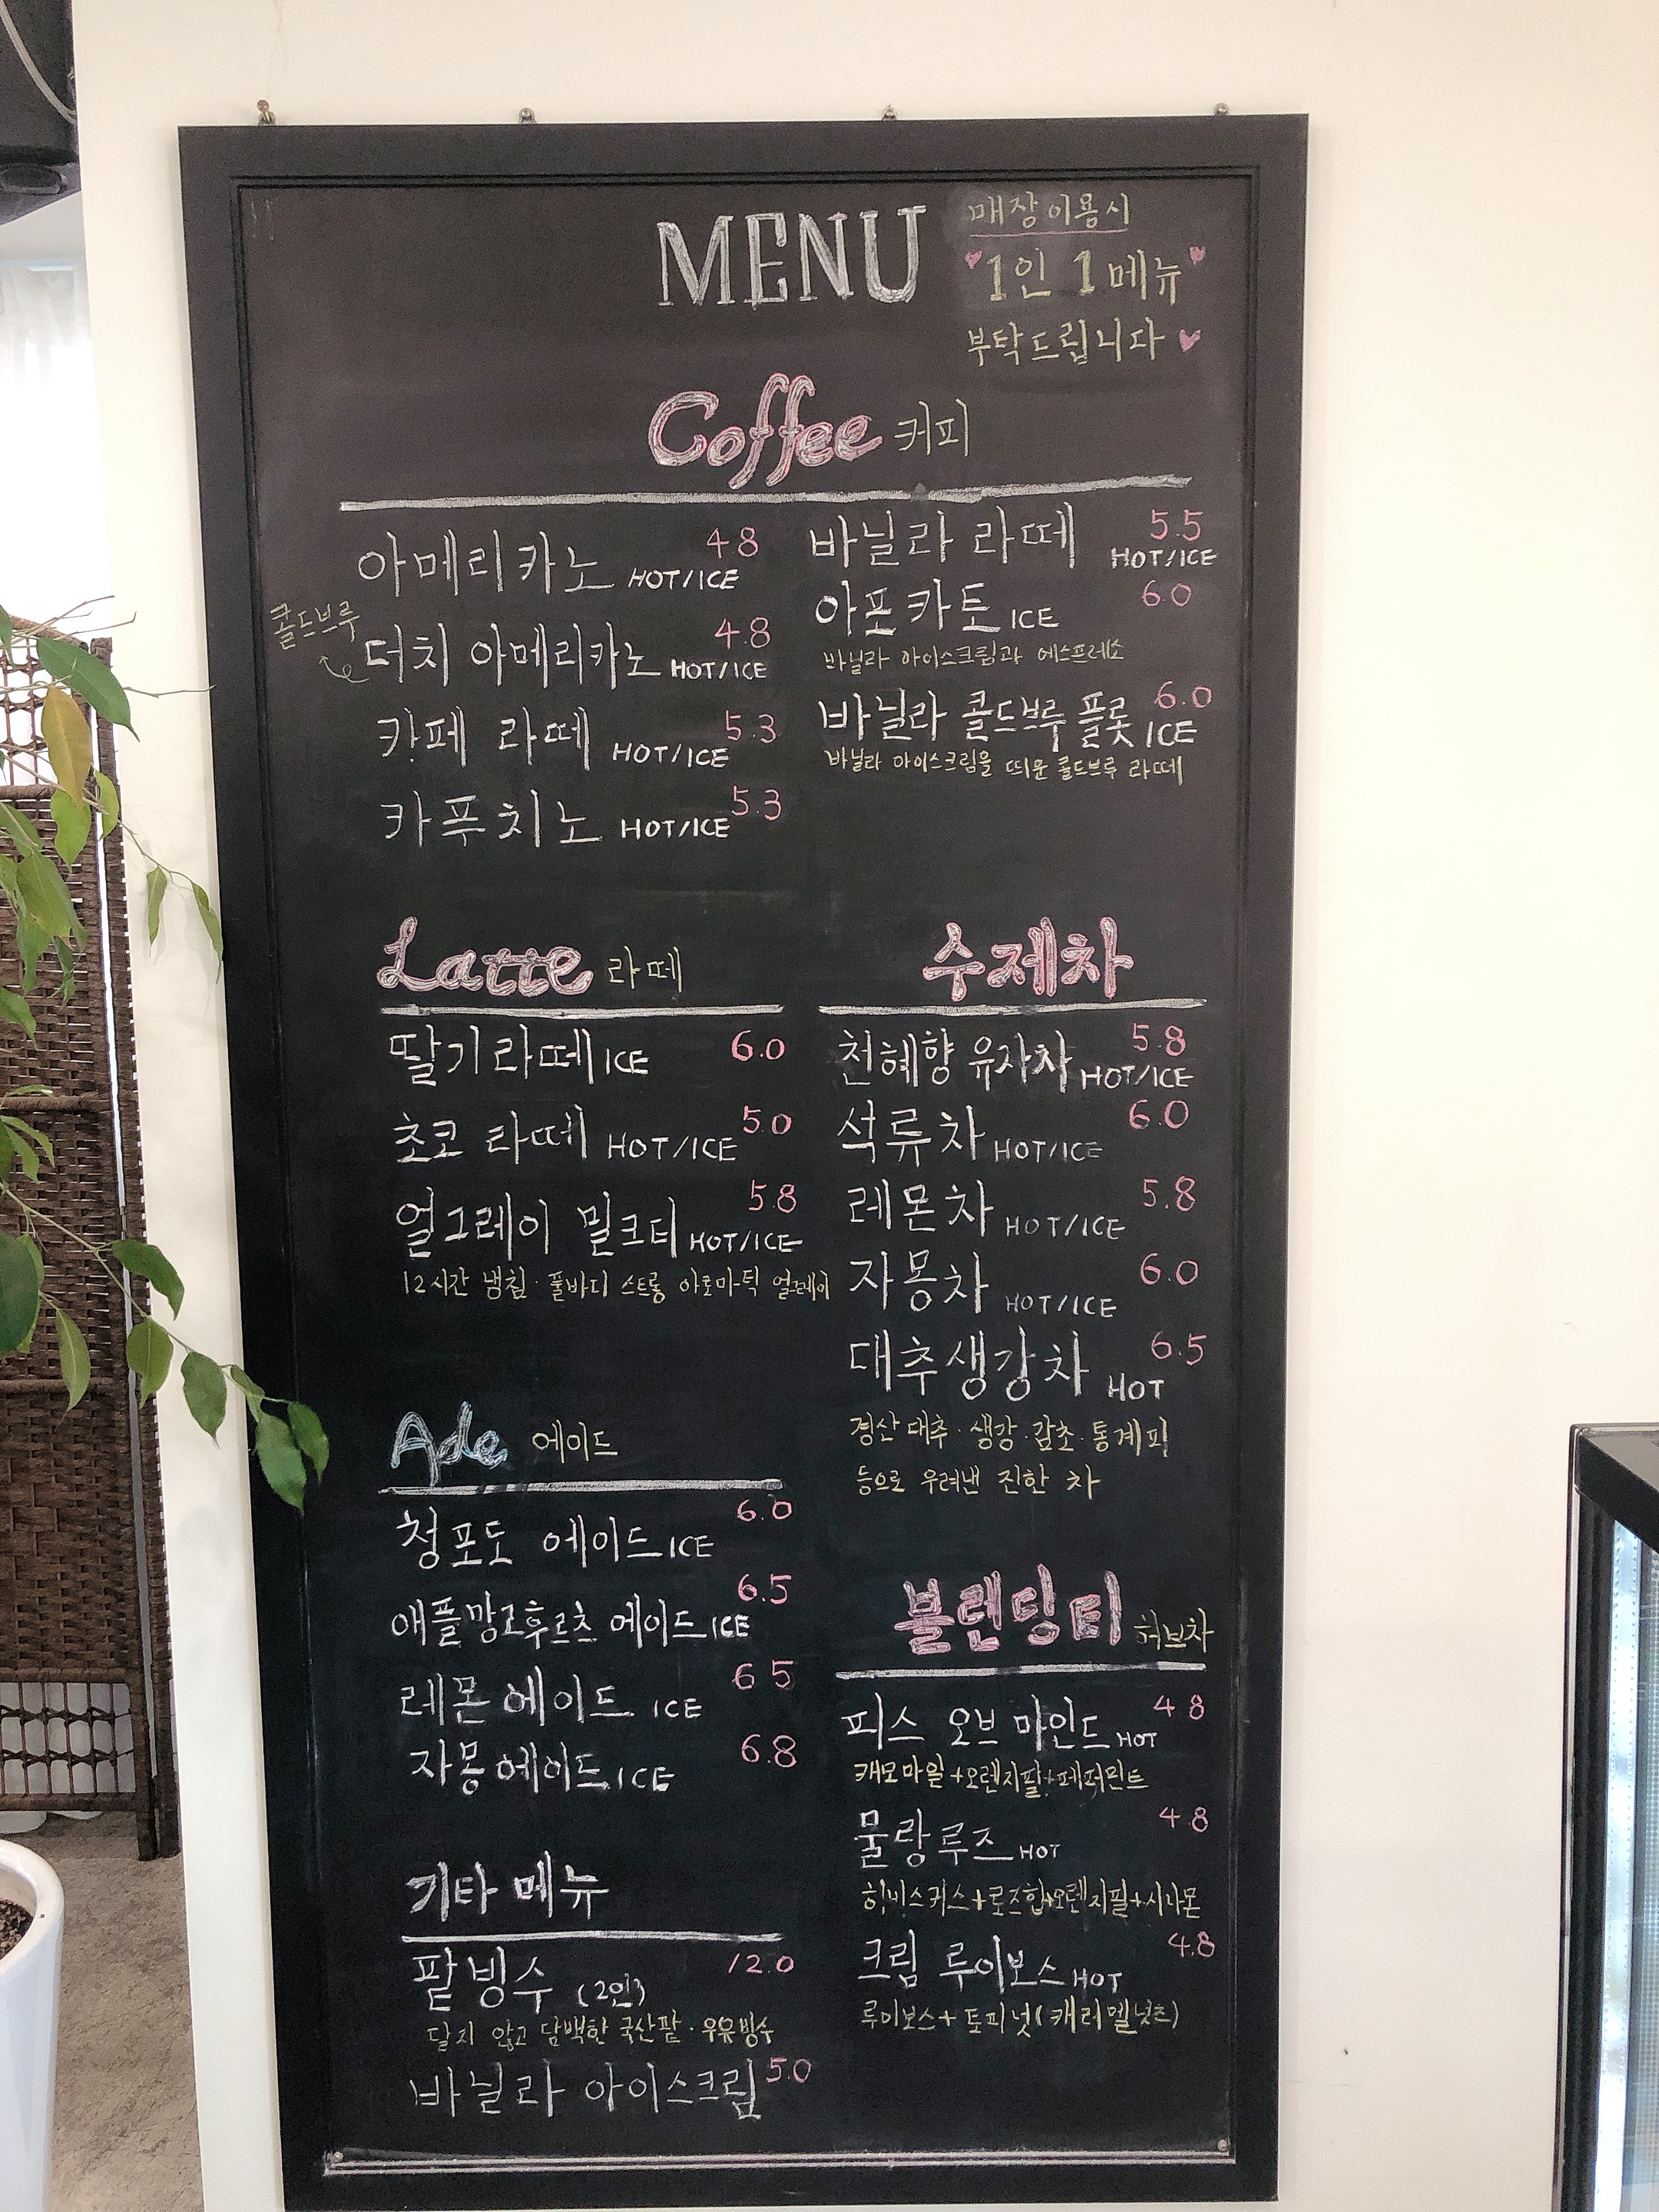 MENU
매장이용시
1인 1메뉴
부탁드립니다
Coffee 커피
아메리카노 HOT/ICE 4.8
콜드브루
더치 아메리카노 HOT/ICE 4.8
카페 라떼 HOT/ICE 5.3
카푸치노 HOT/ICE 5.3
바닐라 라떼 HOT/ICE 5.5
아포카토 ICE 6.0
바닐라 아이스크림과 에스프레소
바닐라 콜드브루 플롯 ICE 6.0
바닐라 아이스크림을 띄운 콜드브루 라떼
Latte 라떼
딸기라떼 ICE 6.0
초코 라떼 HOT/ICE 5.0
얼그레이 밀크티 HOT/ICE 5.8
12시간 냉침·풀바디 스트롱 아로마틱 얼그레이
수제차
천혜향 유자차 HOT/ICE 5.8
석류차 HOT/ICE 6.0
레몬차 HOT/ICE 5.8
자몽차 HOT/ICE 6.0
대추생강차 HOT 6.5
경산대추·생강·감초·통계피
등으로 우려낸 진한 차
Ade 에이드
청포도 에이드 ICE 6.0
애플망고후르츠 에이드 ICE 6.5
레몬에이드 ICE 6.5
자몽에이드 ICE 6.8
블렌딩티 허브차
피스 오브 마인드 HOT 4.8
캐모마일+오렌지필+페퍼민트
물랑루즈 HOT 4.8
히비스커스+로즈힙+오렌지필+시나몬
크림 루이보스 HOT 4.8
루이보스+토피넛(캐러멜넛츠)
기타 메뉴
팥빙수 (2인) 12.0
달지 않고 담백한 국산팥·우유빙수
바닐라 아이스크림 5.0